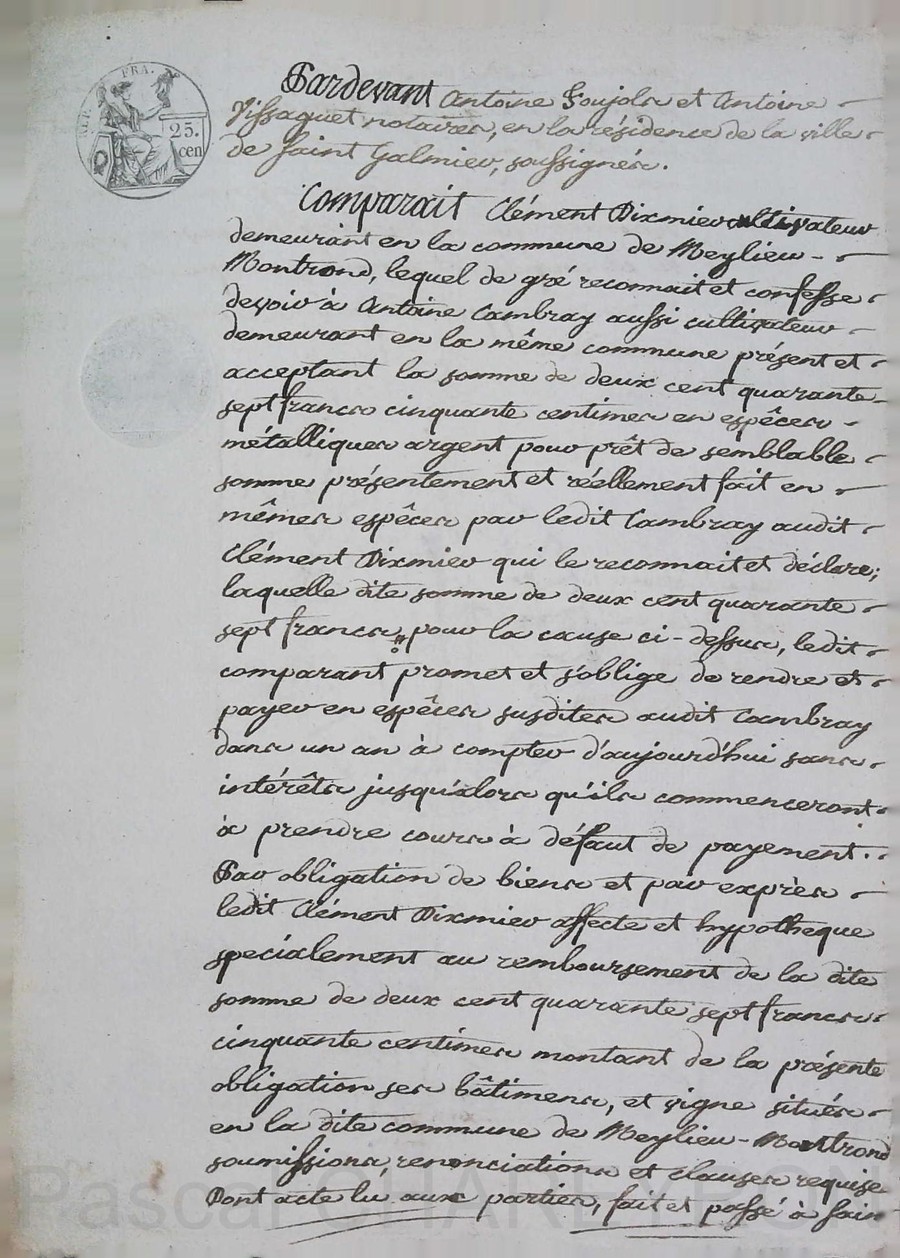 REP. FRA.
25.
cen
Pardevant Antoine Poujols et Antoine
Vissaguet notaires, en la résidence de la ville
de Saint Galmier, soussignés.
Comparait Clément Dixmier cultivateur
demeurant en la commune de Meylieu-
Montrond, lequel de gré reconnait et confesse
devoir à Antoine Cambray aussi cultivateur
demeurant en la même commune présent et
acceptant la somme de deux cent quarante-
sept francs cinquante centimes en espêces
métalliques argent pour prêt de semblable
somme présentement et réellement fait en
mêmes espêces par ledit Cambray audit
Clément Dixmier qui le reconnait et déclare;
laquelle dite somme de deux cent quarante
sept francs, pour la cause ci-dessus, ledit
comparant promet et s'oblige de rendre et
payer en espêces susdites audit Cambray
dans un an à compter d'aujourd'hui sans
intérêts jusqu'alors qu'ils commenceront
à prendre cours à défaut de payement.
Par obligation de biens et par exprès
ledit Clément Dixmier affecte et hypotheque
specialement au remboursement de la dite
somme de deux cent quarante sept francs
cinquante centimes montant de la présente
obligation ses bâtimens, et vigne situés
en la dite commune de Meylieu-Montrond
soumissions, renonciations et clauses requise
Dont acte lu aux parties, fait et passé à Sain
Pascal CHARLEYRON